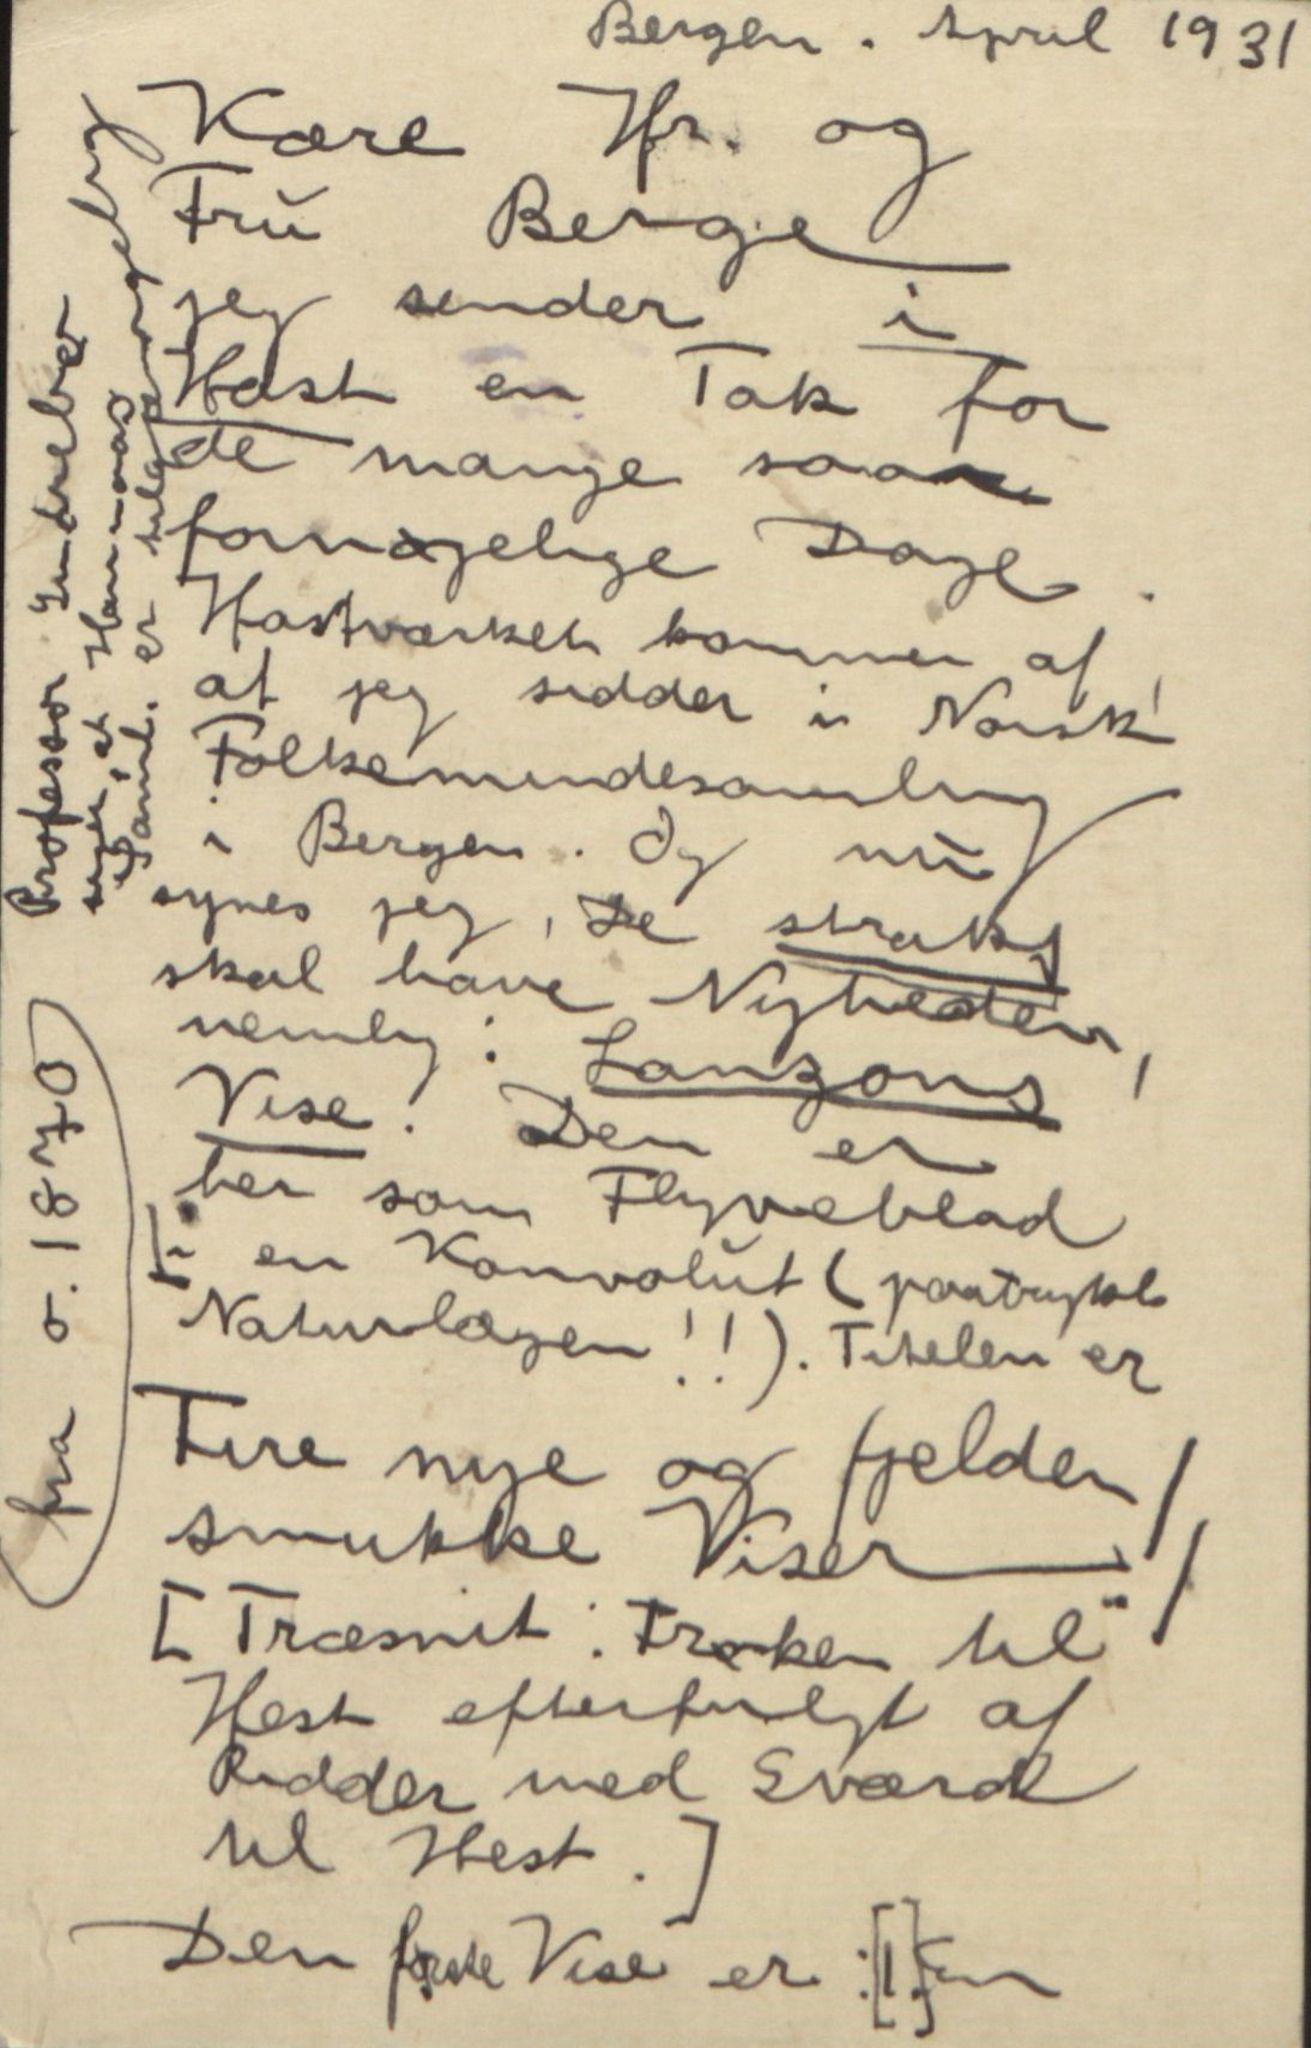 Bergen. April 1931
Kære Hr. og
Frü Berge
jeg sender i
Hast en Tak for
de mange saa
fornøjelige Dage.
Hastværket kommer af,
at jeg sidder i Norsk
Folkemindesamling
i Bergen. Og nü
synes jeg, De straks
skal have Nyheden,
nemlig: Lanzons
Vise! Den er
her som Flyveblad
i en Konvolüt (paatrykt
Naturlægen!!). Titelen er
Fire nye og fjelden
smukke Viser
[Træsnit: Frøken til
Hest efterfulgt af
Ridder med Sværd
til Hest.]
Den første Vise er :[1] En
Professor Indrebø
siger, at Hammaas
Saml. er utilgængelig
fra o. 1870